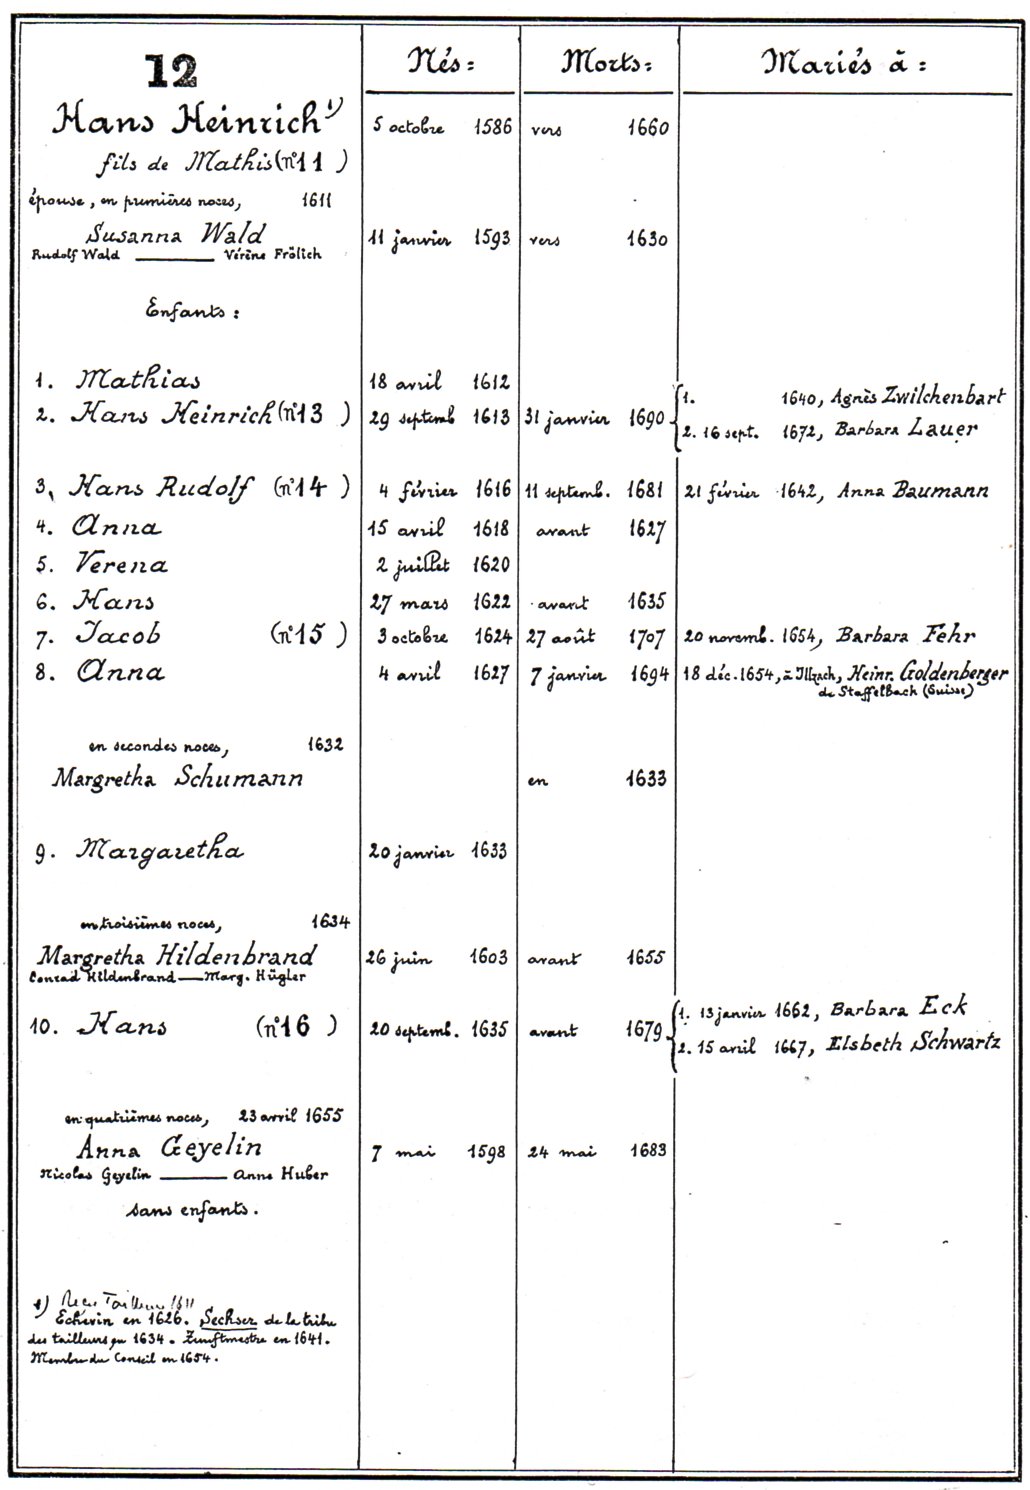 12
Nés: Morts: Mariés à:
Hans Heinrich ¹) 5 octobre 1586 vers 1660
fils de Mathis (n°11 )
épouse, en premières noces, 1611
Susanna Wald 11 janvier 1593 vers 1630
Rudolf Wald —— Vérène Frölich
Enfants:
1. Mathias 18 avril 1612
2. Hans Heinrich (n°13 ) 29 septemb 1613 31 janvier 1690 { 1. 1640, Agnès Zwilchenbart
2. 16 sept. 1672, Barbara Lauer
3. Hans Rudolf (n°14 ) 4 février 1616 11 septemb. 1681 21 février 1642, Anna Baumann
4. Anna 15 avril 1618 avant 1627
5. Verena 2 juillet 1620
6. Hans 27 mars 1622 avant 1635
7. Jacob (n°15 ) 3 octobre 1624 27 août 1707 20 novemb. 1654, Barbara Fehr
8. Anna 4 avril 1627 7 janvier 1694 18 déc. 1654, à Illzach, Heinr. Goldenberger
de Staffelbach (Suisse)
en secondes noces, 1632
Margretha Schumann en 1633
9. Margaretha 20 janvier 1633
en troisièmes noces, 1634
Margretha Hildenbrand 26 juin 1603 avant 1655
Conrad Hildenbrand —— Marg. Hügler
10. Hans (n°16 ) 20 septemb. 1635 avant 1679 { 1. 13 janvier 1662, Barbara Eck
2. 15 avril 1667, Elsbeth Schwartz
en quatrièmes noces, 23 avril 1655
Anna Geyelin 7 mai 1598 24 mai 1683
Nicolas Geyelin —— Anne Huber
sans enfants.
1) Tailleur 1611
Echevin en 1626. Sechser de la tribu
des tailleurs en 1634. Zunftmestre en 1641.
Membre du Conseil en 1654.